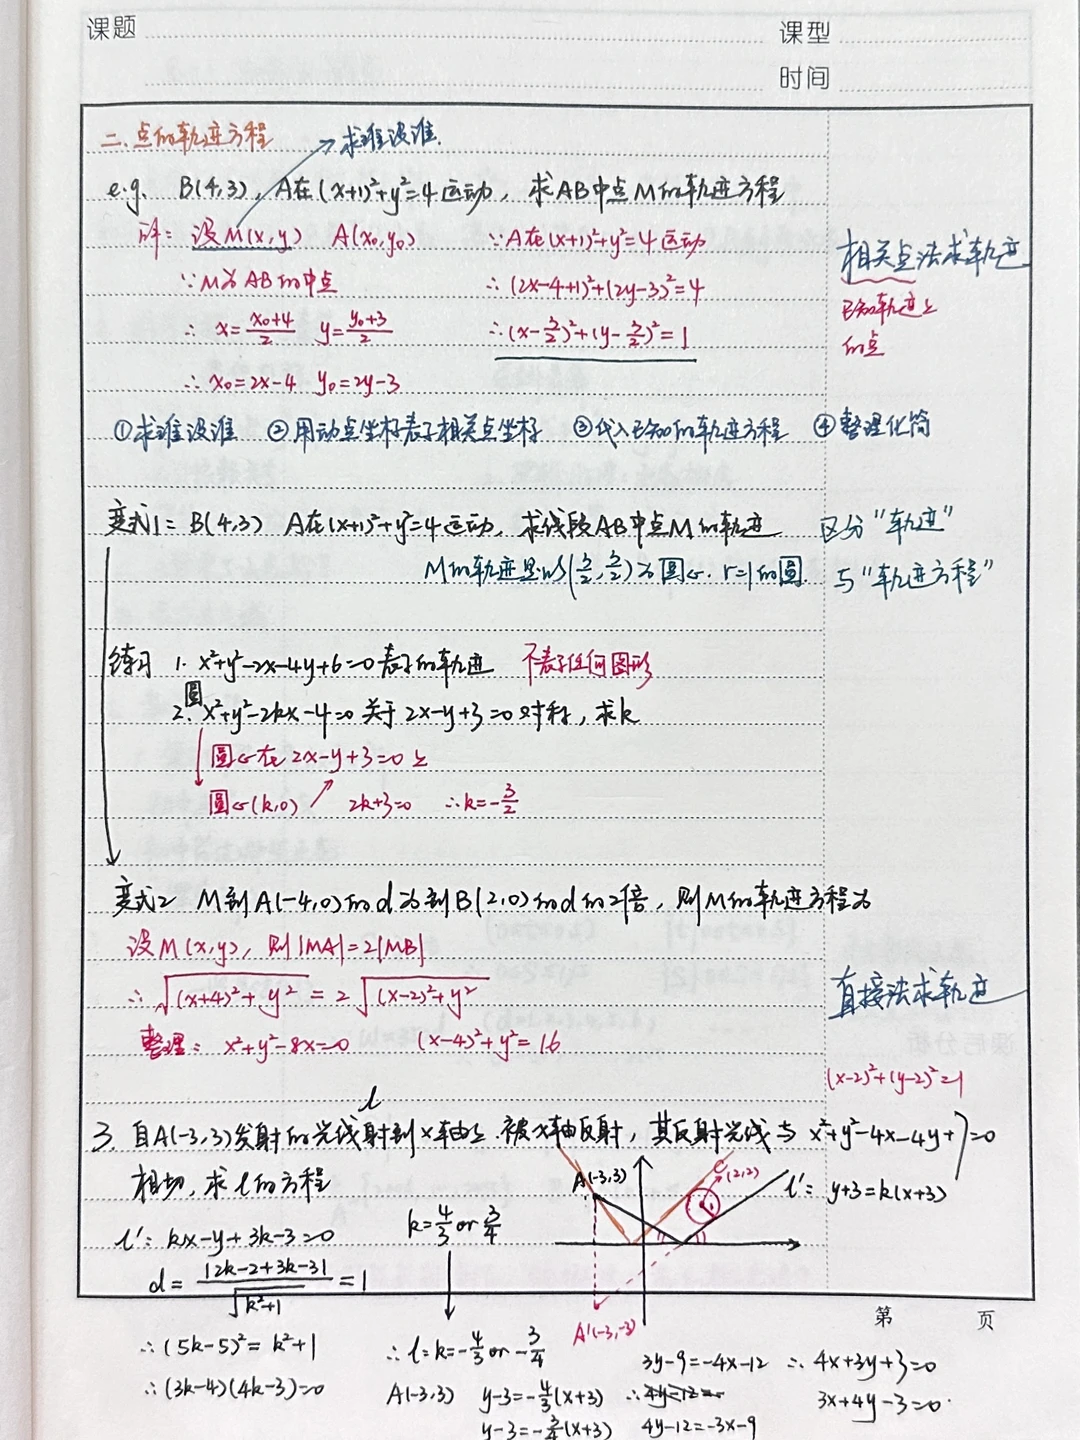 课题
课型
时间
二、点的轨迹方程
→求谁设谁.
e.g. B(4,3), A在(x+1)²+y²=4运动, 求AB中点M的轨迹方程
解: 设M(x,y) A(x₀,y₀) ∵A在(x+1)²+y²=4运动
∵M为AB的中点 ∴(2x-4+1)²+(2y-3)²=4
∴ x=(x₀+4)/2 y=(y₀+3)/2 ∴(x-3/2)²+(y-3/2)²=1
∴ x₀=2x-4 y₀=2y-3
相关点法求轨迹
已知轨迹上
的点
①求谁设谁 ②用动点坐标表示相关点坐标 ③代入已知的轨迹方程 ④整理化简
变式1: B(4,3) A在(x+1)²+y²=4运动, 求线段AB中点M的轨迹
M的轨迹是以(3/2,3/2)为圆心, r=1的圆.
区分“轨迹”
与“轨迹方程”
练习 1. x²+y²-2x-4y+6=0表示的轨迹 不表示任何图形
2. 圆x²+y²-2kx-4=0关于2x-y+3=0对称, 求k
圆心在2x-y+3=0上
圆心(k,0) 2k+3=0 ∴k=-3/2
变式2 M到A(-4,0)的d为到B(2,0)的d的2倍, 则M的轨迹方程为
设M(x,y), 则|MA|=2|MB|
∴ √((x+4)²+y²) = 2√((x-2)²+y²)
整理: x²+y²-8x=0 (x-4)²+y²=16
直接法求轨迹
(x-2)²+(y-2)²=1
l
3. 自A(-3,3)发射的光线射到x轴上, 被x轴反射, 其反射光线与x²+y²-4x-4y+7=0
相切, 求l的方程
A(-3,3)
C
(2,2)
l': y+3=k(x+3)
A'(-3,-3)
l': kx-y+3k-3=0 k=4/3 or 3/4
d=|2k-2+3k-3|/√(k²+1)=1
∴(5k-5)²=k²+1
∴(3k-4)(4k-3)=0
∴l: k=-4/3 or -3/4
A(-3,3) y-3=-4/3(x+3)
y-3=-3/4(x+3)
3y-9=-4x-12 ∴4x+3y+3=0
4y-12=-3x-9
3x+4y-3=0.
第 页